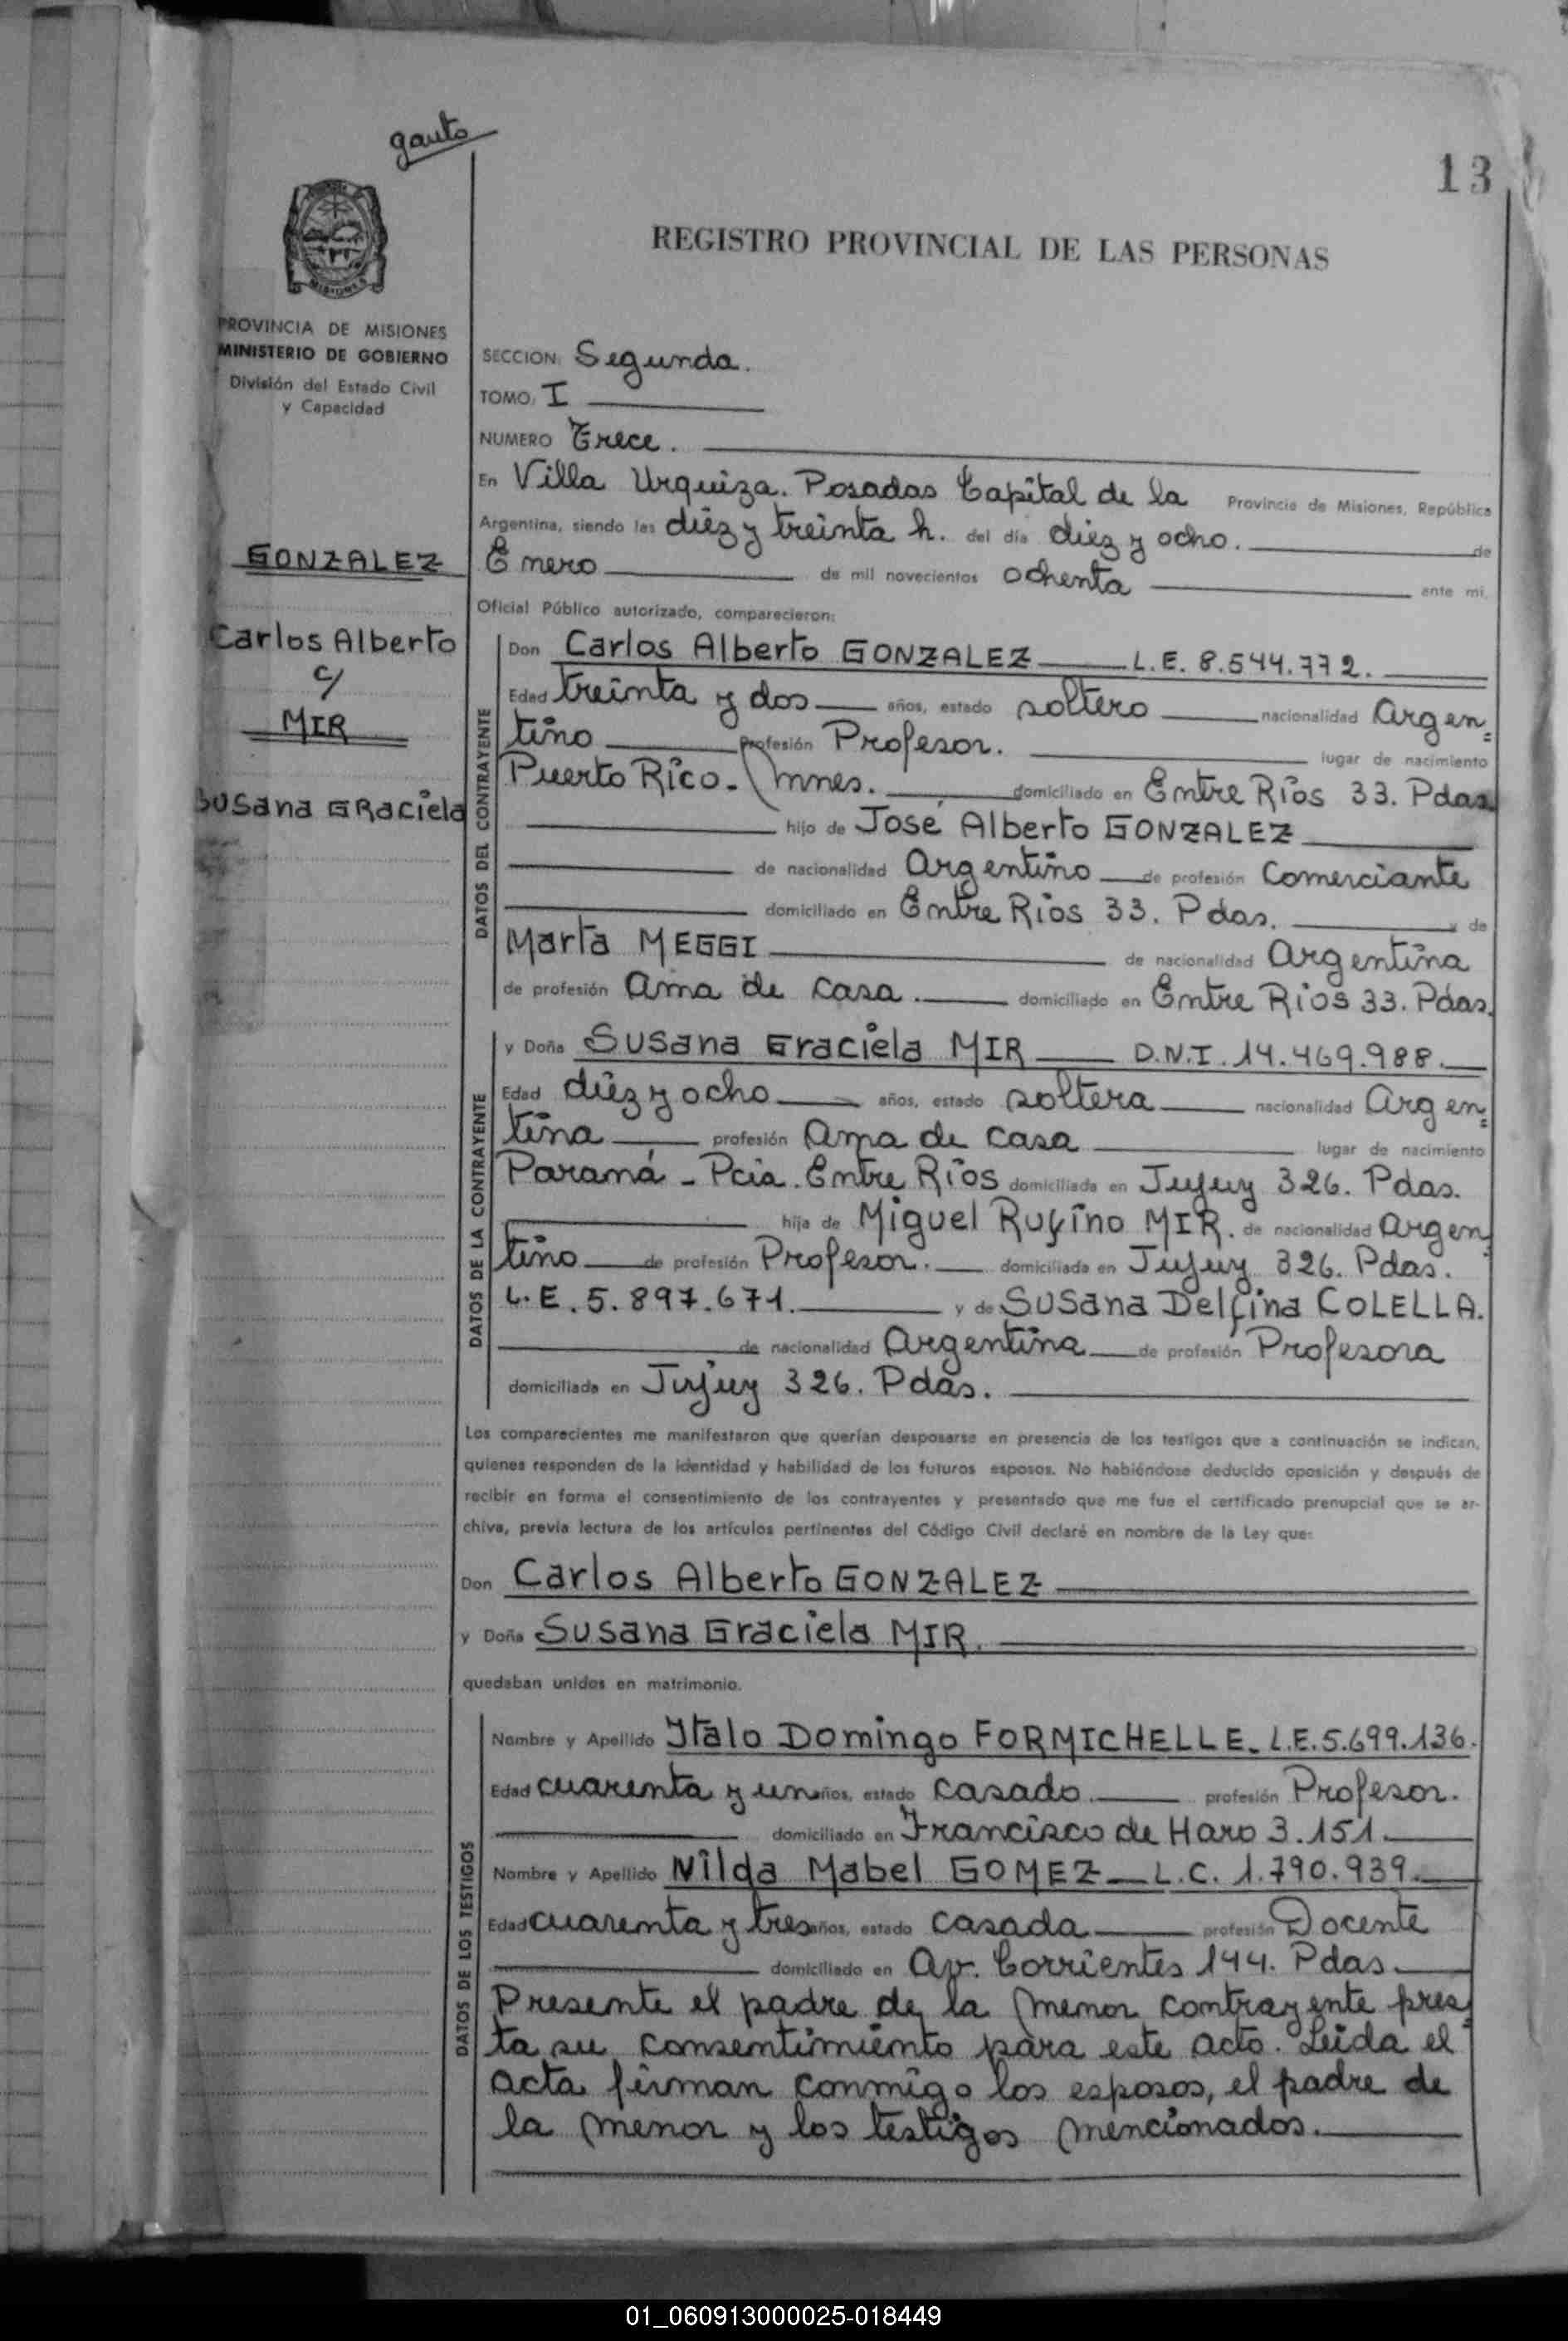 gauto
13
REGISTRO PROVINCIAL DE LAS PERSONAS
MISIONES
PROVINCIA DE MISIONES
MINISTERIO DE GOBIERNO
División del Estado Civil
y Capacidad
SECCION: Segunda.
TOMO: I
NUMERO Trece.
En Villa Urquiza. Posadas Capital de la Provincia de Misiones, República
Argentina, siendo las diez y treinta h. del día diez y ocho. de
Enero de mil novecientos ochenta ante mi,
Oficial Público autorizado, comparecieron:
GONZALEZ
Carlos Alberto
c/
MIR
Susana Graciela
DATOS DEL CONTRAYENTE
Don Carlos Alberto GONZALEZ L.E. 8.544.772.
Edad treinta y dos años, estado soltero nacionalidad Argen=
tino Profesión Profesor. lugar de nacimiento
Puerto Rico - Mnes. domiciliado en Entre Ríos 33. Pdas.
hijo de José Alberto GONZALEZ
de nacionalidad Argentino de profesión Comerciante
domiciliado en Entre Rios 33. Pdas. y de
Marta MEGGI de nacionalidad Argentina
de profesión Ama de casa. domiciliado en Entre Rios 33. Pdas.
DATOS DE LA CONTRAYENTE
y Doña Susana Graciela MIR D.N.I. 14.469.988.
Edad diez y ocho años, estado soltera nacionalidad Argen=
tina profesión Ama de casa lugar de nacimiento
Paraná - Pcia. Entre Ríos domiciliada en Jujuy 326. Pdas.
hija de Miguel Rufino MIR. de nacionalidad Argen
tino de profesión Profesor. domiciliado en Jujuy 326. Pdas.
L.E. 5.897.671. y de Susana Delfina COLELLA.
de nacionalidad Argentina de profesión Profesora
domiciliada en Jujuy 326. Pdas.
Los comparecientes me manifestaron que querían desposarse en presencia de los testigos que a continuación se indican,
quienes responden de la identidad y habilidad de los futuros esposos. No habiéndose deducido oposición y después de
recibir en forma el consentimiento de los contrayentes y presentado que me fue el certificado prenupcial que se ar-
chiva, previa lectura de los artículos pertinentes del Código Civil declaré en nombre de la Ley que:
Don Carlos Alberto GONZALEZ
y Doña Susana Graciela MIR.
quedaban unidos en matrimonio.
DATOS DE LOS TESTIGOS
Nombre y Apellido Italo Domingo FORMICHELLE. L.E. 5.699.136.
Edad cuarenta y un años, estado casado. profesión Profesor.
domiciliado en Francisco de Haro 3.151.
Nombre y Apellido Nilda Mabel GOMEZ L.C. 1.790.939.
Edad cuarenta y tres años, estado casada profesión Docente
domiciliado en Av. Corrientes 144. Pdas.
Presente el padre de la menor contrayente pres=
ta su consentimiento para este acto. Leida el
acta firman conmigo los esposos, el padre de
la menor y los testigos mencionados.
01_060913000025-018449